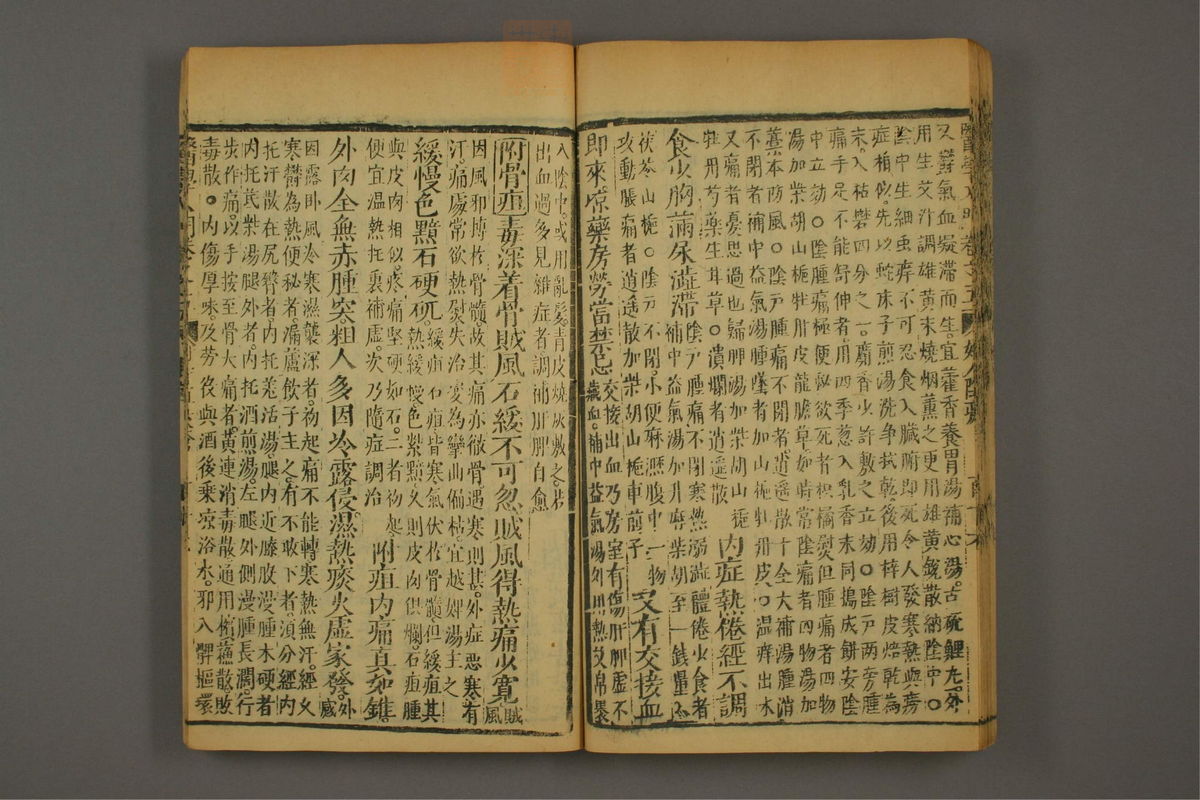 又鬱氣血凝滯而生宜藿香養胃湯補心湯古硫鯉丸外
用生艾汁調雄黃末燒烟薰之更用雄黃銳散納陰中○
陰中生細虫痒不可忍食入臟腑即死令人發寒熱與癆
症相似先以蛇床子煎湯洗争拭乾後用梓樹皮焙乾為
末入枯礬四分之一麝香少許敷之立効○陰戸两旁腫
痛手足不能舒伸者用四季葱入乳香末同搗成餅安陰
中立効○陰腫痛極便秘欲死者枳橘熨但腫痛者四物
湯加柴胡山梔牡丹皮龍膽草如時常陰痛者四物湯加
藁本防風○陰戸腫痛不閉者逍遥散十全大補湯腫消
不閉者補中益氣湯腫墜者加山梔牡丹皮○温痒出水
又痛者憂思過也歸脾湯加柴胡山梔
牡丹芍藥生甘草○潰爛者逍遥散
內症熱倦經不調
食少胸滿尿澁滯
陰戸腫痛不閉寒熱溺澁體倦少食者
補中益氣湯加升麻柴胡至一錢量入
茯苓山梔○陰戸不閉小便淋瀝腹中一物
攻動脹痛者逍遥散加柴胡山梔車前子
又有交接血
即來凉藥房勞當禁忌
交接出血乃房室有傷肝脾虛不
藏血補中益氣湯外用熱艾帛裹
入陰中或用亂髮青皮燒灰敷之若
出血過多見雜症者調補肝脾自愈
附骨疽
毒深着骨賊風石緩不可忽賊風得熱痛少寬
賊風
因風邪搏於骨髓故其痛亦徹骨遇寒則甚外症惡寒有
汗痛處常欲熱熨失治變為攣曲偏枯宜越婢湯主之
緩慢色黯石硬矹
緩疽石疽皆寒氣伏於骨髓但緩疽其
熱緩慢色紫黯久則皮肉俱爛石疽腫
與皮肉相似疼痛堅硬如石二者初起
便宜温熱托裏補虛次乃隨症調治
附疽內痛真如錐
外肉全無赤腫突粗人多因冷露侵濕熱痰火虛家發
外感
因露卧風冷寒濕襲深者初起痛不能轉寒熱無汗經久
寒欝為熱便秘者漏蘆飲子主之有不敢下者須分經內
托汗散在尻臀者內托羗活湯腿內近膝股漫腫木硬者
內托芪柴湯腿外者內托酒煎湯左腿外側漫腫長濶行
步作痛以手按至骨大痛者黃連消毒散通用檳蘇散敗
毒散○內傷厚味及勞後與酒後乘凉浴水邪入髀樞環